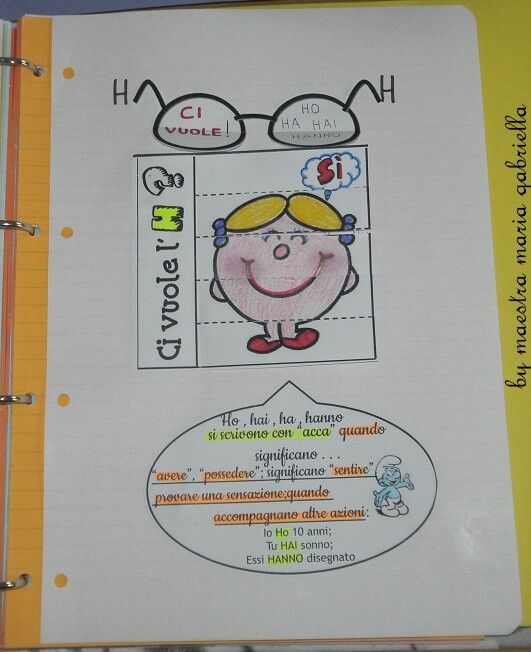 H H
CI
VUOLE!
HO
HA HAI
HANNO
Ci vuole l' H ?
Sì
Ho , hai , ha , hanno
si scrivono con "acca" quando
significano . . .
"avere", "possedere"; significano "sentire"
provare una sensazione;quando
accompagnano altre azioni:
Io Ho 10 anni;
Tu HAI sonno;
Essi HANNO disegnato
by maestra maria gabriella